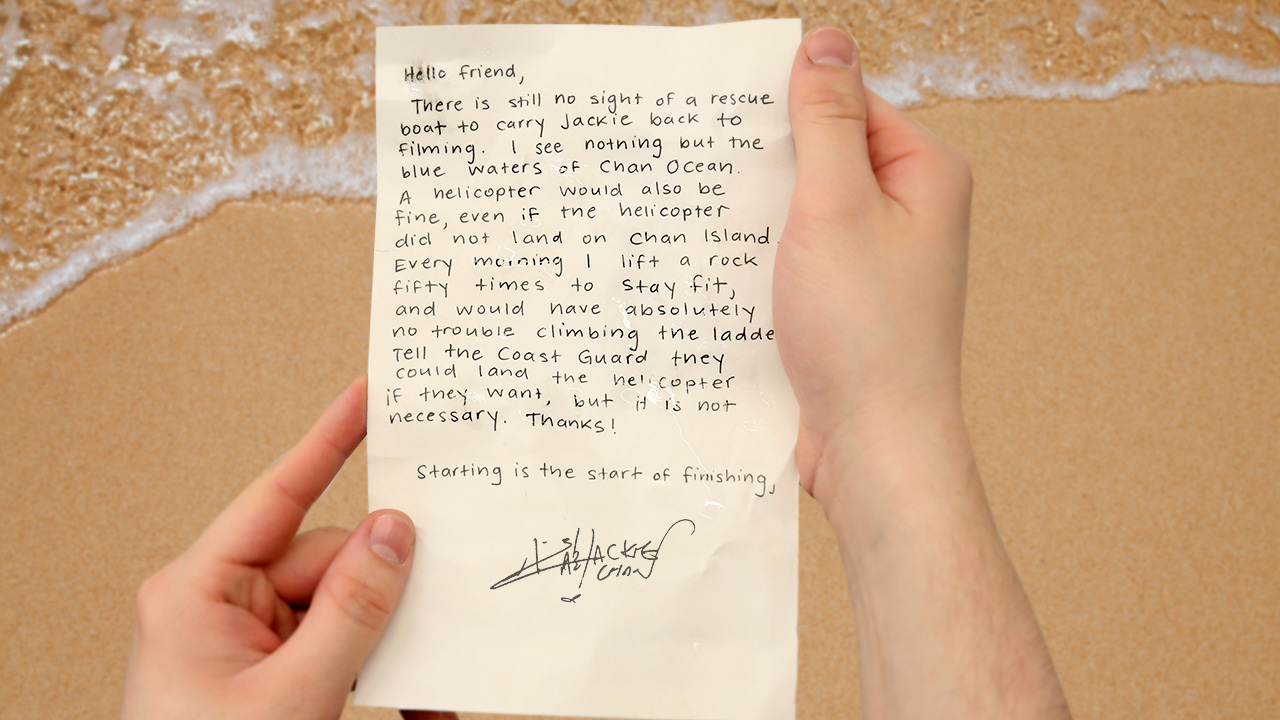 Hello friend,
There is still no sight of a rescue
boat to carry Jackie back to
filming. I see nothing but the
blue waters of Chan Ocean.
A helicopter would also be
fine, even if the helicopter
did not land on Chan Island.
Every morning I lift a rock
fifty times to stay fit,
and would have absolutely
no trouble climbing the ladde
Tell the Coast Guard they
could land the helicopter
if they want, but it is not
necessary. Thanks!
Starting is the start of finishing,
JACKIE
CHAN